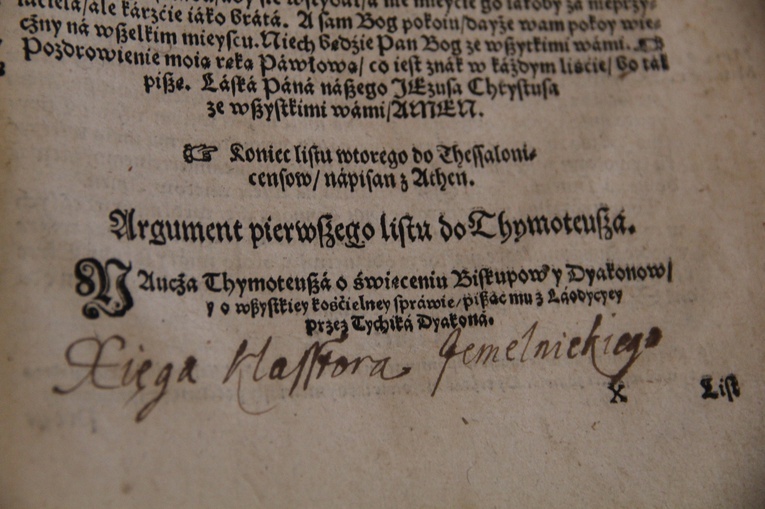 iáćielá/ále karżćie iáko brátá. A sam Bog pokoiu/dayże wam pokoy wie-
cżny ná wßelkim mieyscu. Niech będzie Pan Bog ze wßytkimi wámi. ☞
Pozdrowienie moią ręką Páwłową/ co iest znák w káżdym liśćie/ bo ták
pißę. Láská Páná náßego JEzusa Chrystusa
ze wßystkimi wámi/AMEN.
☞ Koniec listu wtorego do Thessaloni-
censow/ nápisan z Athen.
Argument pierwßego listu do Thymoteußá.
NAucża Thymoteußá o święceniu Biskupow y Dyakonow/
y o wßystkiey kośćielney spráwie/pißąc mu z Láodycyey
przez Tychiká Dyakoná.
Xięga Klasstora Jemelnickiego
X List